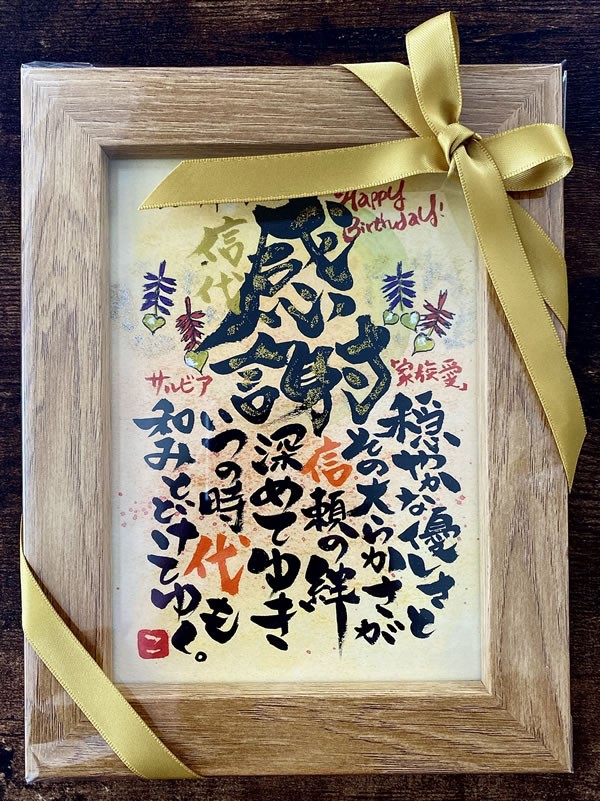 Happy
Birthday!
信代
感謝
サルビア
「家族愛」
穏やかな優しさと
その大らかさが
信頼の絆
深めてゆき
いつの時代も
和みとどけてゆく。